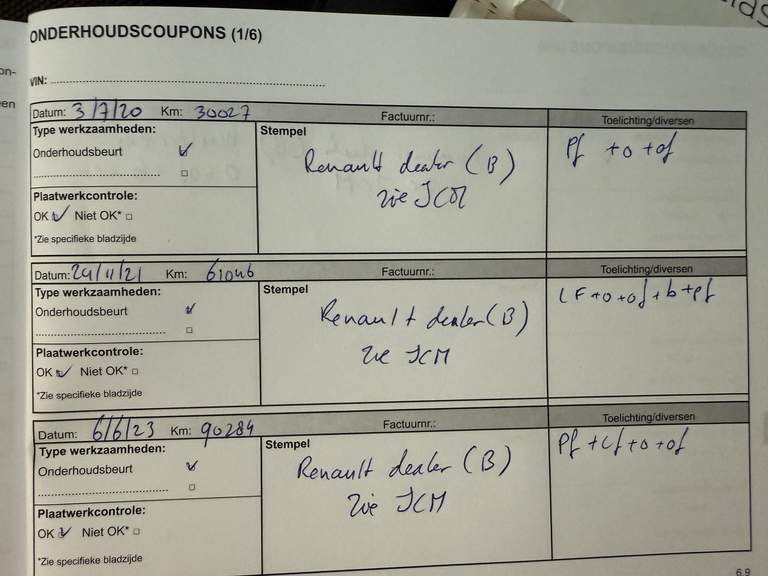 ONDERHOUDSCOUPONS (1/6)
VIN:
Datum: 3/7/20 Km: 30027 Factuurnr.: Toelichting/diversen
Type werkzaamheden: Stempel Pf +o +of
Onderhoudsbeurt
Renault dealer (B)
zie ICM
Plaatwerkcontrole:
OK Niet OK*
*Zie specifieke bladzijde
Datum: 24/11/21 Km: 61046 Factuurnr.: Toelichting/diversen
Type werkzaamheden: Stempel LF +o +of + b +pf
Onderhoudsbeurt
Renault dealer (B)
zie ICM
Plaatwerkcontrole:
OK Niet OK*
*Zie specifieke bladzijde
Datum: 6/6/23 Km: 90284 Factuurnr.: Toelichting/diversen
Type werkzaamheden: Stempel Pf +Lf +o +of
Onderhoudsbeurt
Renault dealer (B)
zie ICM
Plaatwerkcontrole:
OK Niet OK*
*Zie specifieke bladzijde
6.9